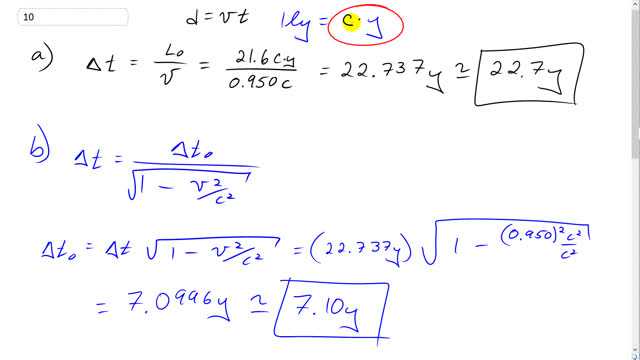 10
d = vt   1 ly = c · y
a) Δt = L₀/v = 21.6 cy/0.950c = 22.737y ≃ 22.7y
b) Δt = Δt₀/√(1 − v²/c²)
Δt₀ = Δt √(1 − v²/c²) = (22.737y) √(1 − (0.950)²c²/c²)
= 7.0996y ≃ 7.10y